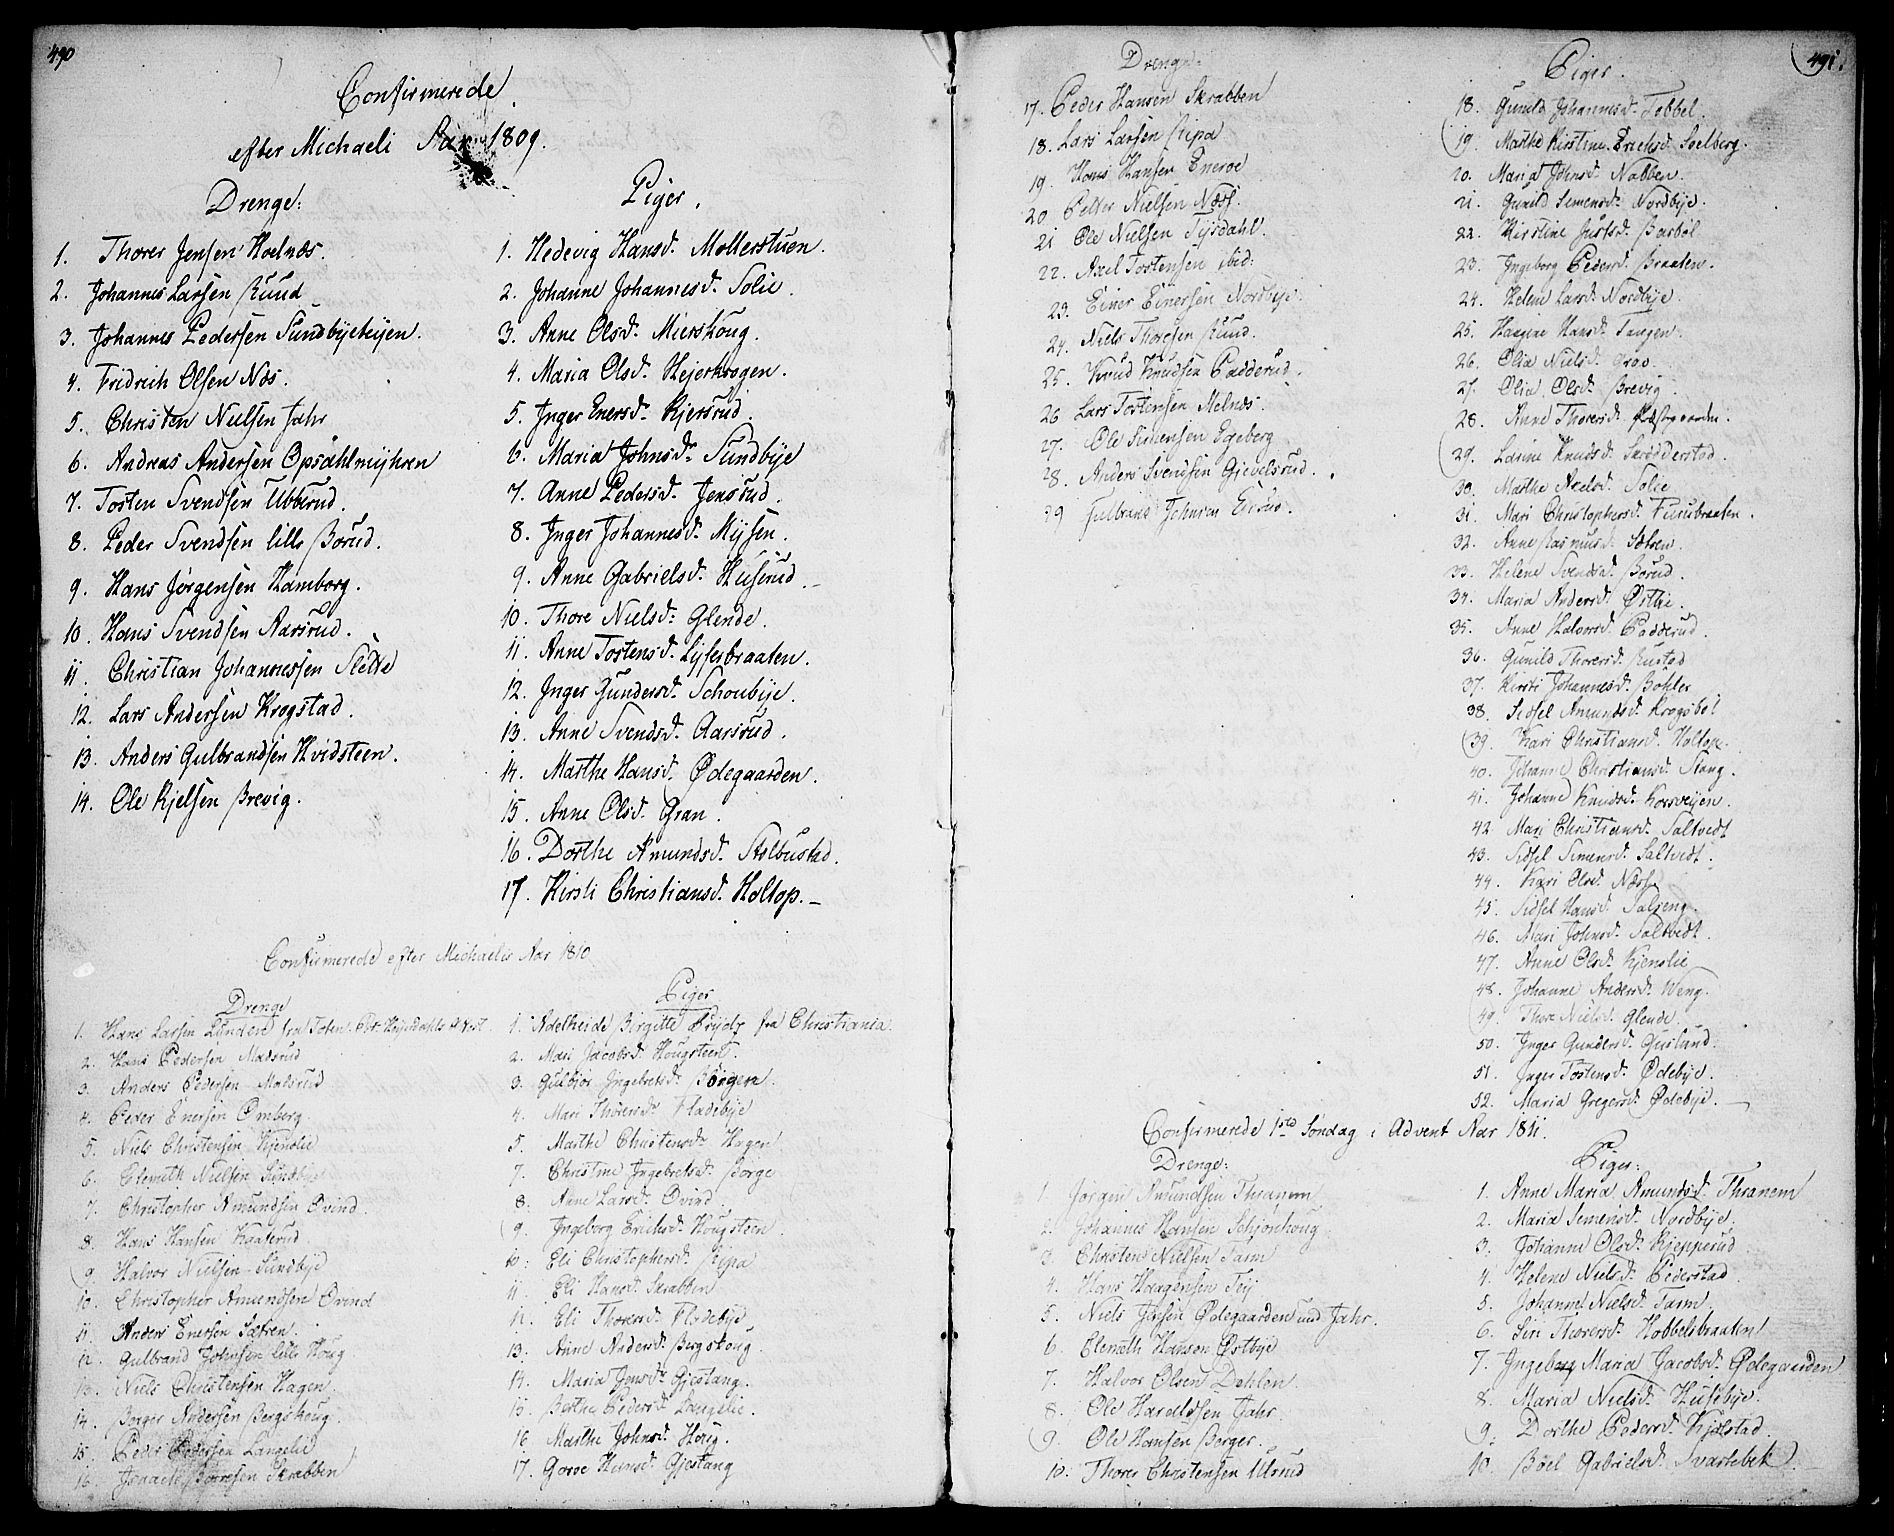 490
Confirmerede
efter Michaeli Aar 1809.
Drenge:
1. Thorer Jensen Hoelnæs.
2. Johannes Larsen Ruud
3. Johannes Pedersen Sundbyeteijen.
4. Fridrich Olsen Næs.
5. Christen Nielsen Jahr
6. Andreas Andersen Opsahlmyhren
7. Tosten Svendsen Ubberud.
8. Peder Svendsen lille Borud.
9. Hans Jørgensen Hamborg.
10. Hans Svendsen Aarsrud.
11. Christian Johannessen Slette
12. Lars Andersen Krogstad.
13. Anders Gulbrandsen Hvidsteen.
14. Ole Kjelsen Brevig.
Piger.
1. Hedevig Hansd. Mollerstuen.
2. Johanne Johannesd. Solie.
3. Anne Olsd. Mierskoug.
4. Maria Olsd. Hejerkrogen.
5. Inger Enersd. Kjersrud.
6. Maria Johnsd. Sundbye
7. Anne Pedersd. Jensrud.
8. Inger Johannesd. Mysen.
9. Anne Gabrielsd. Huserud.
10. Thore Nielsd. Glende.
11. Anne Tostensd. Lyserbraaten.
12. Inger Gundersd. Schoubye.
13. Anne Svendsd. Aarsrud.
14. Marthe Hansd. Ødegaarden.
15. Anne Olsd. Gran.
16. Dorthe Amundsd. Stolbustad.
17. Kirsti Christiansd. Holtop.
Confirmerede efter Michaelis Aar 1810
Drenge
1. Hans Larsen Lunden fra Toten
2. Hans Pedersen Madsrud
3. Anders Pedersen Madsrud
4. Peder Enersen Omberg.
5. Niels Christensen Kjenslie
6. Clemeth Nielsen Sundbye
7. Christopher Amundsen Øvind.
8. Hans Hansen Kaaterud.
9. Halvor Nielsen Sundbye
10. Christopher Amundsen Øvind
11. Anders Enersen Sætren.
12. Gulbrand Johnsen lille Houg
13. Niels Christensen Hagen
14. Borger Andersen Bergskoug.
15. Peder Pedersen Langelie
16. Isaach Børresen Skrabben
Piger
1. Adelheide Birgitte Prydz fra Christiania.
2. Mari Jacobsd. Hougsteen.
3. Gulbior Ingebretsd. Borgen.
4. Mari Thorersd. Fladebye
5. Marthe Christensd. Hagen
7. Christine Ingebretsd. Borge
8. Anne Larsd. Øvind
9. Ingeborg Erichsd. Hougsteen
10. Eli Christophersd. Ripa
11. Eli Hansd. Skrabben
12. Eli Thorersd. Fladebye
13. Anne Andersd. Bergskoug
14. Maria Jensd. Gjestang.
15. Berthe Pedersd. Langelie.
16. Marthe Johnsd. Houg.
17. Goroe Hansd. Gjestang
491.
Drenge.
17. Peder Hansen Skrabben
18. Lars Larsen Ripa
19. Hans Hansen Eneroe
20 Petter Nielsen Næss.
21 Ole Nielsen Tysdahl.
22. Axel Tostensen ibid:
23. Einer Einersen Nordbye.
24. Niels Thoresen Ruud.
25. Knud Knudsen Padderud.
26 Lars Tostensen Melnæs.
27. Ole Simensen Egeberg
28. Anders Svendsen Gjevelsrud.
29 Gulbrand Johnsen Eirud.
Piger.
18. Gunild Johannesd. Tobbel.
19. Marthe Kirstine Erichsd. Soelberg.
20. Maria Johnsd. Nabben.
21. Gunild Simensd. Nordbye.
22. Kirstine Justsd. Barbøl
23. Ingeborg Pedersd. Braaten.
24. Helene Larsd. Nordbye
25. Hagine Hansd. Tangen.
26. Olia Nielsd. Grav.
27. Olia Olsd. Brevig.
28. Anne Thorersd. Præstgaarden.
29. Larine Knudsd. Skredderstad.
30. Marthe Axelsd. Solie
31. Mari Christophersd. Furubraaten.
32. Anne Rasmusd. Sætren.
33. Helene Svendsd. Borud.
34. Maria Andersd. Østbye.
35. Anne Halvorsd. Padderud.
36. Gunild Thorersd. Rustad
37. Kirsti Johannesd. Bohler
38. Sidsel Amundsd. Krogsbøl
39. Kari Christiansd. Holtop.
40. Johanne Christiansd. Stang.
41. Johanne Knudsd. Korsveijen.
42. Mari Christiansd. Saltvedt
43. Sidsel Simensd. Saltvedt.
44. Kari Olsd. Næss.
45. Sidsel Hansd. Soljeng.
46. Mari Johnsd. Saltvedt.
47. Anne Olsd. Kjenslie
48. Johanne Andersd. Weng.
49. Thore Nielsd. Glende.
50. Inger Gundersd. Guslund.
51. Inger Tostensd. Ødebye.
52. Maria Gregersd. Ødebye.
Confirmerede 1ste Søndag i Advent Aar 1811.
Drenge:
1. Jørgen Amundsen Thranem
2. Johannes Hansen Schjønhoug
3. Christen Nielsen Tarm
4. Hans Haagensen Teij
5. Niels Jensen Ødegaarden und Jahr.
6. Clemeth Hansen Østbye
7. Halvor Olsen Dahlen.
8. Ole Haraldsen Jahr.
9. Ole Hansen Berger.
10. Thorer Christensen Ulsrud
Piger:
1. Anne Maria Amundsd. Thranem
2. Maria Simensd. Nordbye.
3. Johanne Olsd. Kjepperud
4. Helene Nielsd. Pederstad.
5. Johanne Nielsd. Tarm
6. Siri Thorersd. Hobbelsbraaten
7. Ingeborg Maria Jacobsd. Ødegaarden
8. Maria Nielsd. Husebye.
9. Dorthe Pedersd. Kjølstad.
10. Boel Gabrielsd. Svartebek.